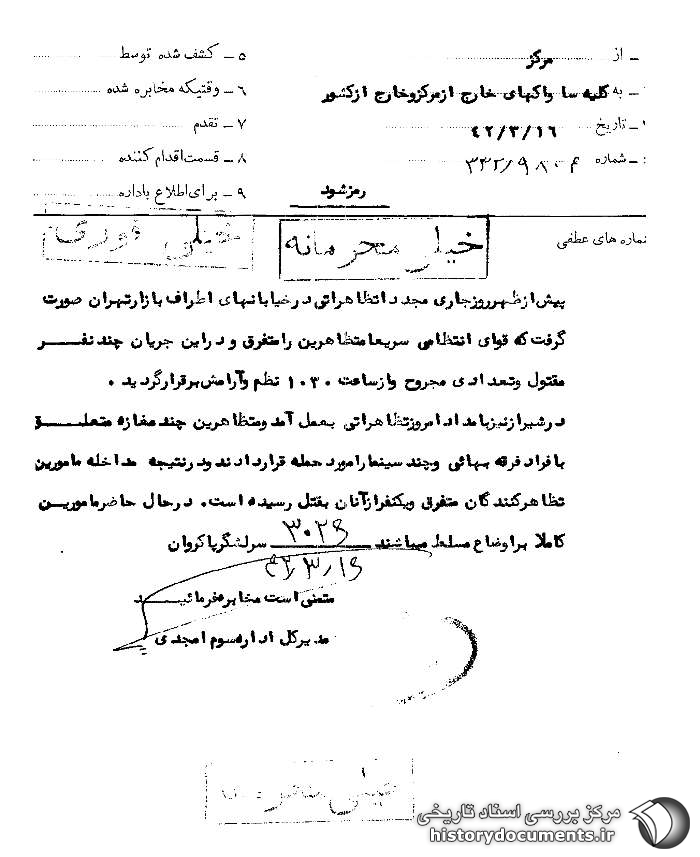 ـ از مرکز
ـ به کلیه ساواکهای خارج ازمرکزوخارج ازکشور
ـ تاریخ ۴۲/۳/۱۶
ـ شماره
۵ ـ کشف شده توسط
۶ ـ وقتیکه مخابره شده
۷ ـ تقدم
۸ ـ قسمت اقدام کننده
۹ ـ برای اطلاع باداره
رمزشود
نماره های عطفی
خیلی محرمانه
خیلی فوری
پیش ازظهرروزجاری مجددا تظاهراتی درخیابانهای اطراف بازارتهران صورت
گرفت که قوای انتظامی سریعا متظاهرین رامتفرق ودراین جریان چند نفـــر
مقتول وتعدادی مجروح وازساعت ۱۰۳۰ نظم وآرامش برقرارگردید .
درشیرازنیزبامداد امروزتظاهراتی بعمل آمد ومتظاهرین چند مغازه متعلـــق
بافراد فرقه بهائی وچند سینما رامورد حمله قراردادند ودرنتیجه مداخله مامورین
تظاهرکنندگان متفرق ویکنفرازآنان بقتل رسیده است. درحال حاضرمامورین
کاملا براوضاع مسلط میباشند ــــ سرلشگرپاکروان
۳۰۲۶
۴۲/۳/۱۶
متمنی است مخابره فرمائیـــد
مدیرکل اداره سوم امجدی
خیلی محرمانه
مرکز بررسی اسناد تاریخی
historydocuments.ir